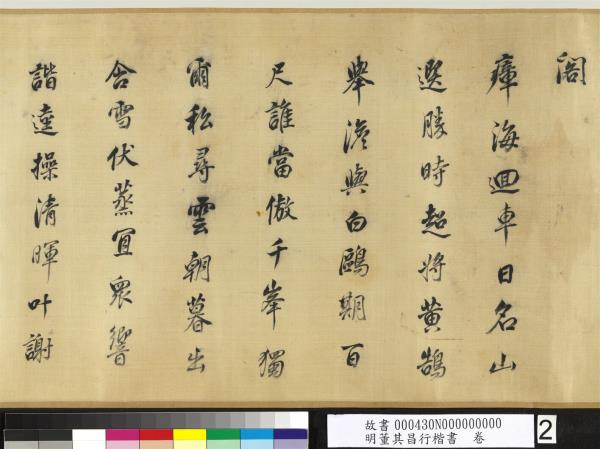 閣
瘴海迴車日名山
選勝時超將黃鵠
舉澹與白鷗期百
尺誰當傲千峯獨
爾私尋雲朝暮出
含雪伏蒸宜眾響
諧達操清暉叶謝
故書 000430N000000000
明董其昌行楷書 卷
2